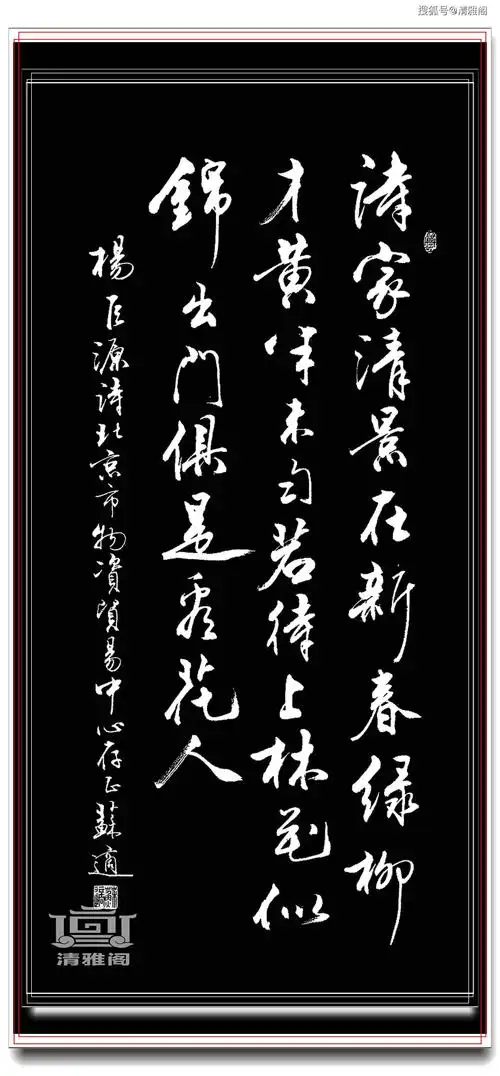 搜狐号@清雅阁
詩家清景在新春绿柳
才黄半未匀若待上林花似
錦出門俱是看花人
楊巨源詩北京市物資貿易中心存正蘇適
清雅阁